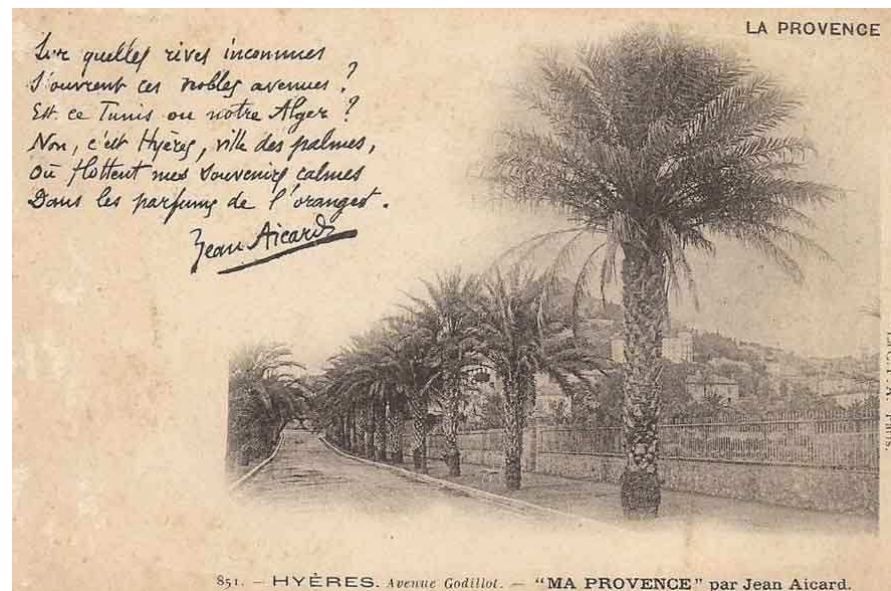 LA PROVENCE
Sur quelles rives inconnues
S'ouvrent ces nobles avenues ?
Est ce Tunis ou notre Alger ?
Non, c'est Hyères, ville des palmes,
Où flottent mes souvenirs calmes
Dans les parfums de l'oranger.
Jean Aicard
851. — HYÈRES. Avenue Godillot. — "MA PROVENCE" par Jean Aicard.